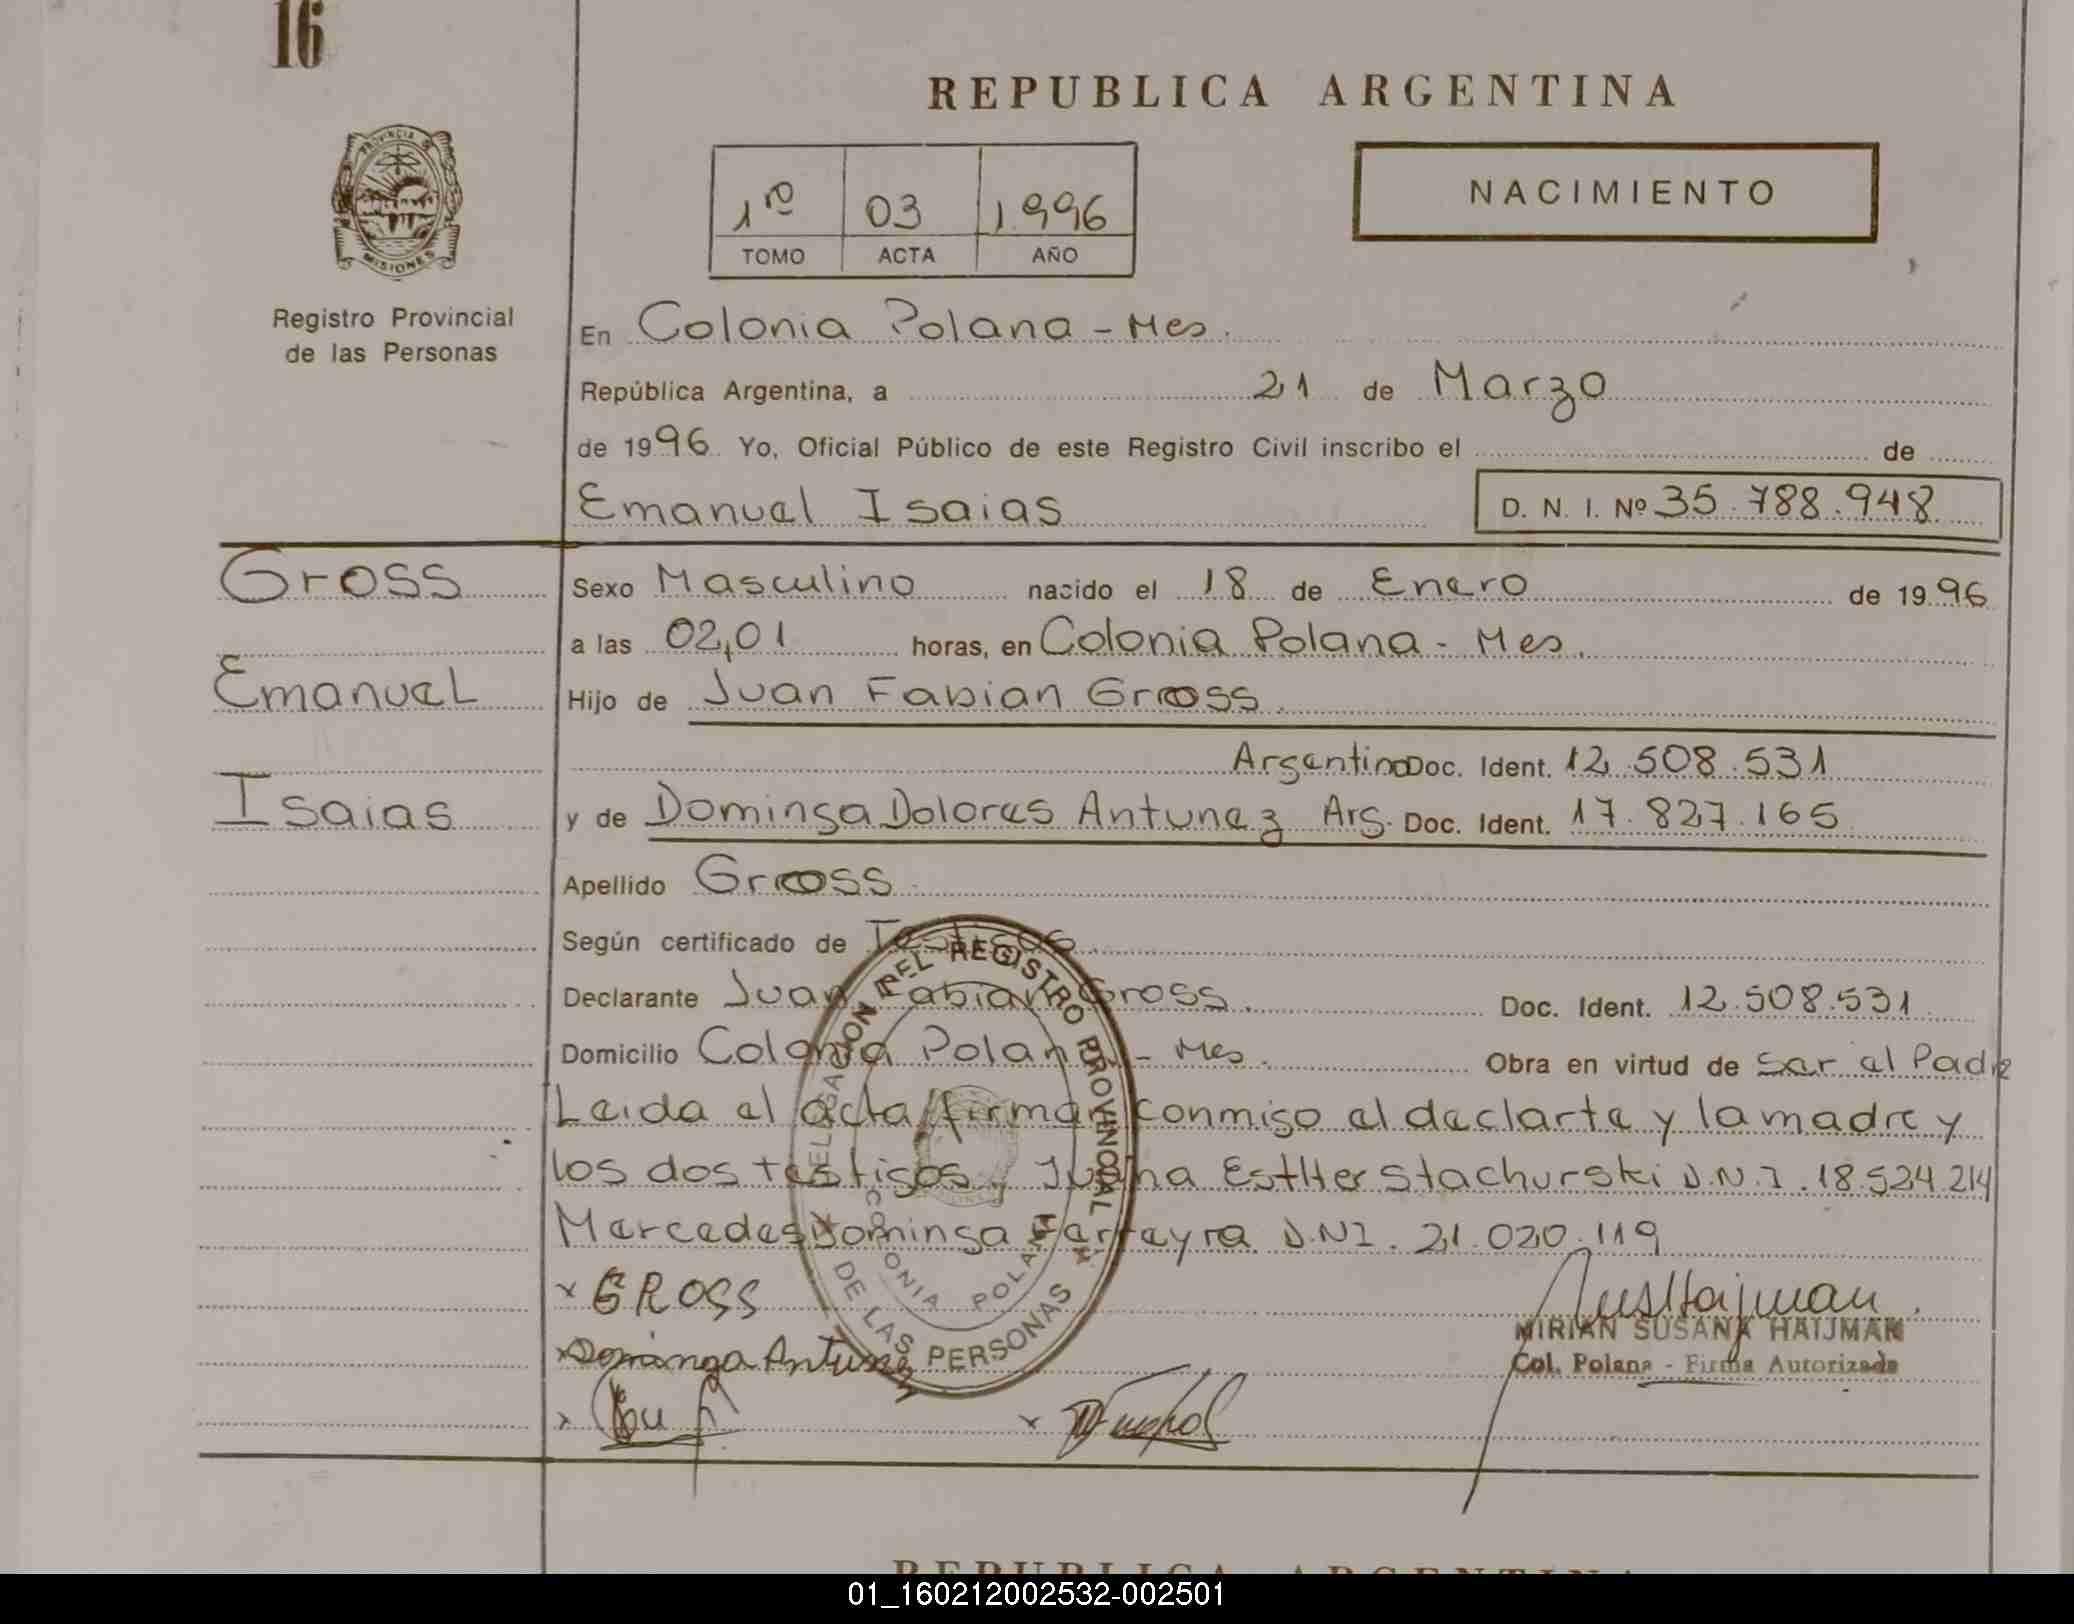 16
REPUBLICA ARGENTINA
PROVINCIA D
MISIONES
1ro 03 1.996
TOMO ACTA AÑO
NACIMIENTO
Registro Provincial
de las Personas
En Colonia Polana - Mes.
República Argentina, a 21 de Marzo
de 1996 Yo, Oficial Público de este Registro Civil inscribo el de
Emanuel Isaias D. N. I. Nº 35.788.948
Gross
Emanuel
Isaias
Sexo Masculino nacido el 18 de Enero de 1996
a las 02,01 horas, en Colonia Polana - Mes.
Hijo de Juan Fabian Gross.
Argentino Doc. Ident. 12.508.531
y de Dominga Dolores Antunez Arg. Doc. Ident. 17.827.165
Apellido Gross.
Según certificado de Testigos.
Declarante Juan Fabian Gross. Doc. Ident. 12.508.531
Domicilio Colonia Polana - Mes. Obra en virtud de ser el Padre
Leida el acta firman conmigo el declarte y la madre y
los dos testigos, Juana Esther Stachurski D.N.I. 18.524.214
Mercedes Dominga Ferreyra D.NI. 21.020.119
DELEGACION DEL REGISTRO PROVINCIAL
DE LAS PERSONAS
COLONIA POLANA
x GROSS
x Dominga Antunez
x
x
MIRIAN SUSANA HAIJMAN
Col. Polana - Firma Autorizada
REPUBLICA ARGENTINA
01_160212002532-002501